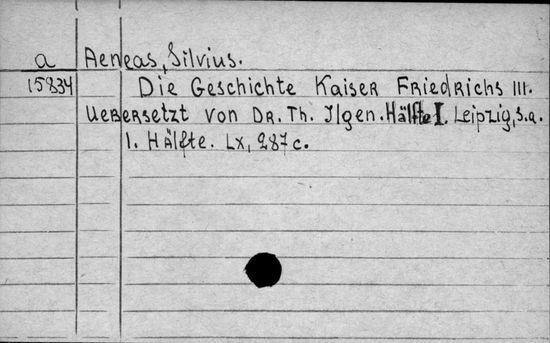 a Aeneas, Silvius.
15834 Die Geschichte Kaiser Friedrichs III.
Uebersetzt von Dr. Th. Ilgen. Hälfte I. Leipzig, s.a.
1. Hälfte. LX, 287 c.